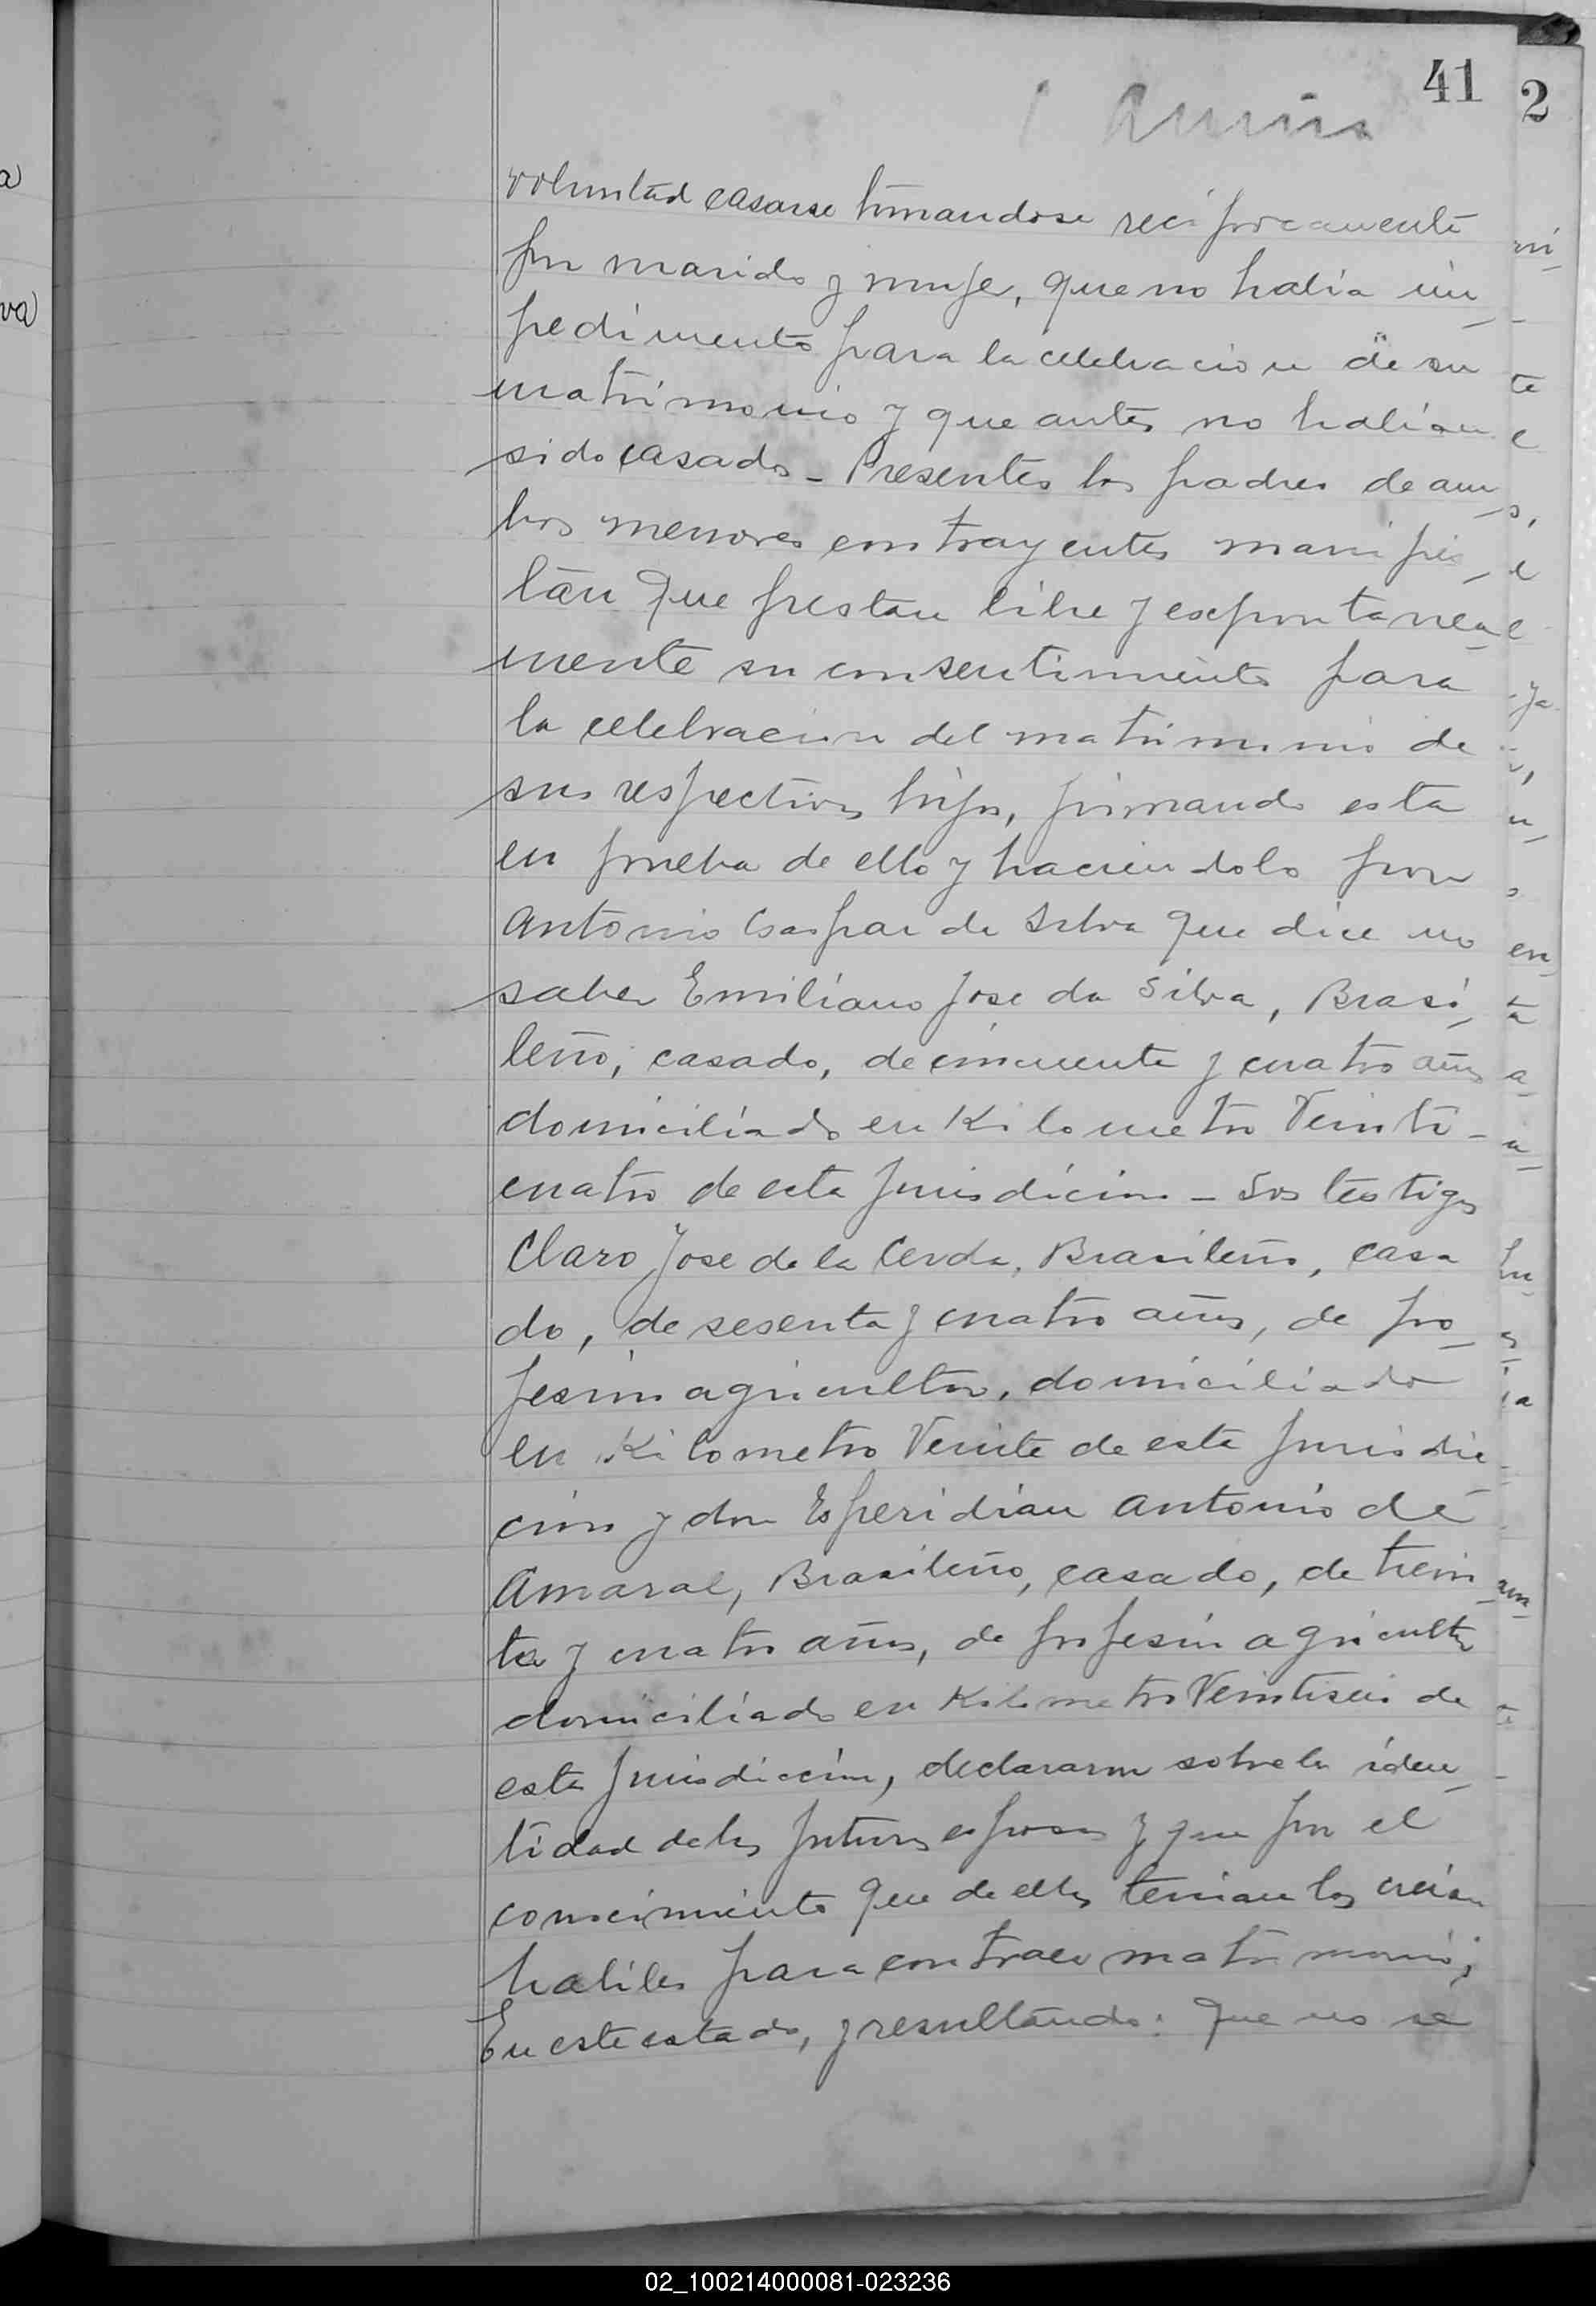 41
2
voluntad casarse tomandose reciprocamente
por marido y mujer, que no habia im_
pedimento para la celebracion de su
matrimonio y que antes no habian
sido casados_ Presentes los padres de am_
bos menores contrayentes manifies_
tan que prestan libre y espontanea_
mente su consentimiento para
la celebracion del matrimonio de
sus respectivos hijos, firmando esta
en prueba de ello y haciendolo por
Antonio Gaspar da Silva que dice no
saber Emiliano Jose da Silva, Brasi_
leño, casado, de cincuenta y cuatro años
domiciliado en Kilometro Veinti-
cuatro de esta jurisdicion_ Los testigos
Claro Jose de la Cerda, Brasileño, casa
do, de sesenta y cuatro años, de pro_
fesion agricultor, domiciliado
en Kilometro Veinte de esta jurisdic
cion y don Esperidian Antonio de
Amaral, Brasileño, casado, de trein_
ta y cuatro años, de profesion agricultor
domiciliado en Kilometro Veintiseis de
esta jurisdiccion, declararon sobre la iden_
tidad de los futuros esposos y que por el
conocimiento que de ellos tenian los creian
habiles para contraer matrimonio;
En este estado, y resultando: Que no se
02_100214000081-023236